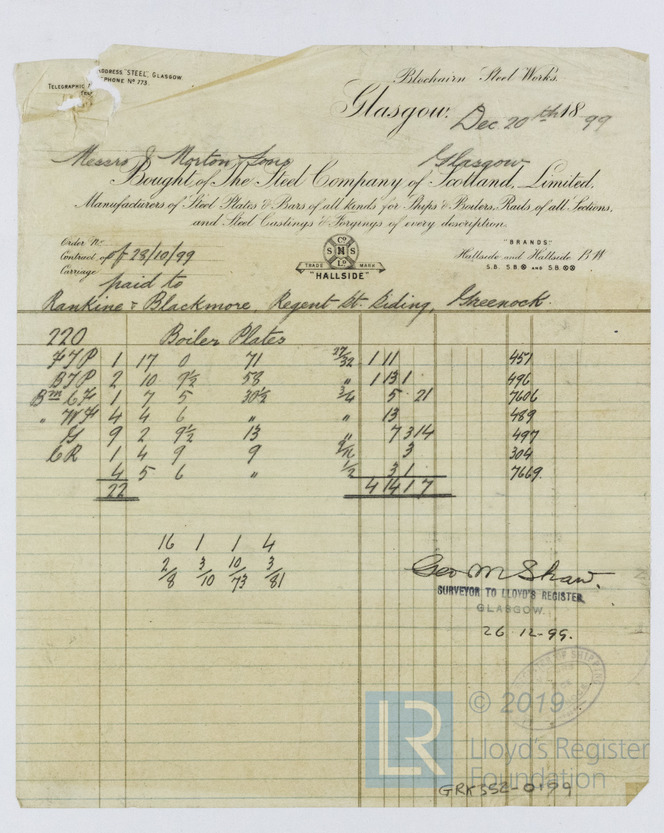 ADDRESS "STEEL", GLASGOW
PHONE No 773.
TELEGRAPHIC
Blochairn Steel Works.
Glasgow, Dec 20th 1899
Messrs J Morton & Sons Glasgow
Bought of The Steel Company of Scotland, Limited,
Manufacturers of Steel Plates & Bars of all kinds for Ships & Boilers, Rails of all Sections,
and Steel Castings & Forgings of every description.
Order No
Contract of 28/10/99
Carriage paid to
Co
S M S
Ld
TRADE MARK
"HALLSIDE"
"BRANDS"
Hallside and Hallside B.W
S.B. S.B AND S.B
Rankine & Blackmore, Regent St. Siding, Greenock.
220 Boiler Plates
FTP 1 17 0 71 27/32 1 11 451
BTP 2 10 9½ 58 " 1 13 1 496
Bm CF 1 7 5 30½ ¾ 5 21 7606
" WF 4 4 6 " " 13 489
G 9 2 9½ 13 " 7 3 14 497
CR 1 4 9 9 3 304
4 5 6 " ½ 3 1 7669
22 4 14 1 7
16 1 1 4
2/8 3/10 10/73 3/81
Geo M Shaw.
SURVEYOR TO LLOYD'S REGISTER
GLASGOW.
26-12-99.
OF SHIPPING
LR
© 2019
Lloyd's Register
Foundation
GRK352-0199